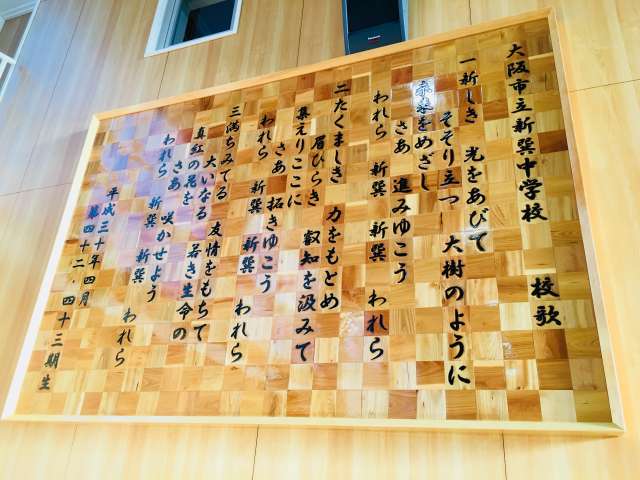 大阪市立新巽中学校 校歌
一新しき 光をあびて
そそり立つ 大樹のように
未来をめざし
さあ 進みゆこう
われら 新巽 新巽 われら
二たくましき 力をもとめ
眉ひらき 叡知を汲みて
集えりここに
さあ 拓きゆこう
われら 新巽 新巽 われら
三満ちみてる 友情をもちて
大いなる 若き生命の
真紅の花を
さあ 咲かせよう
われら 新巽 新巽 われら
平成三十年四月
第四十二・四十三期生